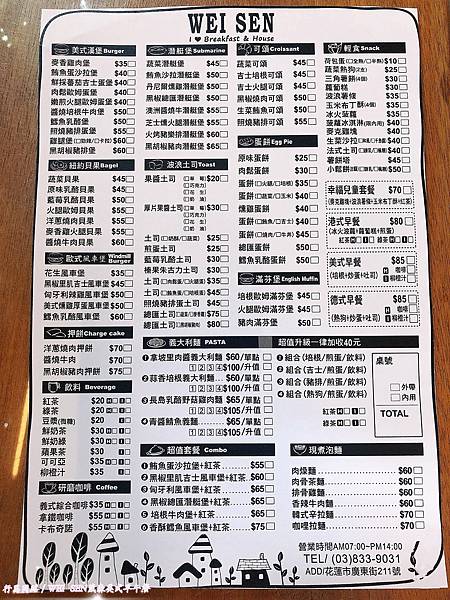 WEI SEN
I ♥ Breakfast & House
美式漢堡 Burger
麥香雞肉堡 $35
鮪魚蛋沙拉堡 $40
鮮採蕃茄吉士蛋堡 $40
肉鬆歐姆蛋堡 $40
嫩煎火腿歐姆蛋堡 $40
醬燒培根牛肉堡 $50
鱈魚乳酪堡 $50
照燒豬排蛋堡 $50
雞腿堡 $60
黑胡椒豬排堡 $60
紐約貝果 Bagel
蔬菜貝果 $45
原味乳酪貝果 $45
藍莓乳酪貝果 $50
火腿歐姆貝果 $50
洋蔥燻肉貝果 $60
麥香雞火腿貝果 $60
醬燒牛肉貝果 $60
歐式風車堡 Windmill Burger
花生風車堡 $35
黑椒里肌吉士風車堡 $45
匈牙利辣雞風車堡 $50
美式燻雞厚蛋風車堡 $50
鱈魚乳酪風車堡 $60
押餅 Charge cake
洋蔥燒肉押餅 $70
醬燒牛肉 $70
黑胡椒豬肉押餅 $75
飲料 Beverage
紅茶 $20
綠茶 $20
豆漿(微糖) $20
鮮奶茶 $30
鮮奶綠 $30
蘋果茶 $30
可可亞 $35
柳橙汁 $35
研磨咖啡 Coffee
義式綜合咖啡 $35
拿鐵咖啡 $55
卡布奇諾 $55
潛艇堡 Submarine
蔬菜潛艇堡 $45
鮪魚沙拉潛艇堡 $50
丹尼爾雞潛艇堡 $50
黑椒總匯潛艇堡 $50
澳洲燻牛潛艇堡 $55
芝士燻火腿潛艇堡 $55
火烤豬樂排潛艇堡 $60
黑胡椒豬排潛艇堡 $60
波浪土司 Toast
果醬土司 $20
厚片果醬土司 $30
土司 $25
煎蛋土司 $25
藍莓乳酪土司 $30
榛果朱古力土司 $30
土司 $30
土司 $35
照燒豬排土司 $50
總匯土司 $60
總匯土司 $80
可頌 Croissant
蔬菜可頌 $45
吉士培根可頌 $45
吉士火腿可頌 $45
黑椒燒肉可頌 $50
生菜鮪魚可頌 $50
照燒豬排可頌 $55
蛋餅 Egg Pie
原味蛋餅 $25
肉鬆蛋餅 $30
蛋餅(火腿/培根) $35
蛋餅(蔬菜/玉米) $35
燻雞蛋餅 $40
蛋餅(鮪魚/吉士) $40
蛋餅(燒肉/牛丼) $45
總匯蛋餅 $50
鱈魚乳酪蛋餅 $50
滿芬堡 English Muffin
培根歐姆滿芬堡 $45
火腿歐姆滿芬堡 $45
豬肉滿芬堡 $50
輕食 Snack
荷包蛋 $10
蔬菜熱狗(2支) $25
三角薯餅(4個) $30
蘿蔔糕 $30
波浪薯條 $35
玉米布丁酥(4個) $35
冰火菠蘿 $35
菠蘿冰淇淋(限內用) $40
麥克雞塊 $40
生菜沙拉 $40
法式土司 $40
薯餅塔 $45
小鬆餅 $50
幸福兒童套餐 $70
港式早餐 $80
(冰火波蘿+蘿蔔糕+煎蛋)
美式早餐 $85
(培根+炒蛋+吐司)
咖啡
柳橙汁
德式早餐 $85
(熱狗+炒蛋+吐司)
咖啡
柳橙汁
義大利麵 PASTA
❶拿坡里肉醬義大利麵 $60/單點
1 2 3 4 $100/升值
❷蒜香培根義大利麵… $60/單點
1 2 3 4 $100/升值
❸長島乳酪野菇雞肉麵 $65/單點
1 2 3 4 $105/升值
❹青醬鮪魚義麵 $65/單點
1 2 3 4 $105/升值
超值升級一律加收40元
❶組合(培根/煎蛋/飲料)
❷組合(吉士/煎蛋/飲料)
❸組合(豬排/煎蛋/飲料)
❹組合(熱狗/煎蛋/飲料)
紅茶
綠茶
桌號
外帶
內用
TOTAL
超值套餐 Combo
❶鮪魚蛋沙拉堡+紅茶 $55
❷黑椒里肌吉士風車堡+紅茶 $60
❸匈牙利風車堡+紅茶 $65
❹黑椒總匯潛艇堡+紅茶 $65
❺培根牛肉堡+紅茶 $65
❻香酥鱈魚風車堡+紅茶 $75
現煮泡麵
肉燥麵 $60
肉骨茶麵 $60
排骨雞麵 $60
香辣牛肉麵 $60
韓式辛拉麵 $70
咖哩拉麵 $70
營業時間AM07:00~PM14:00
TEL/ (03)833-9031
ADD/花蓮市廣東街211號